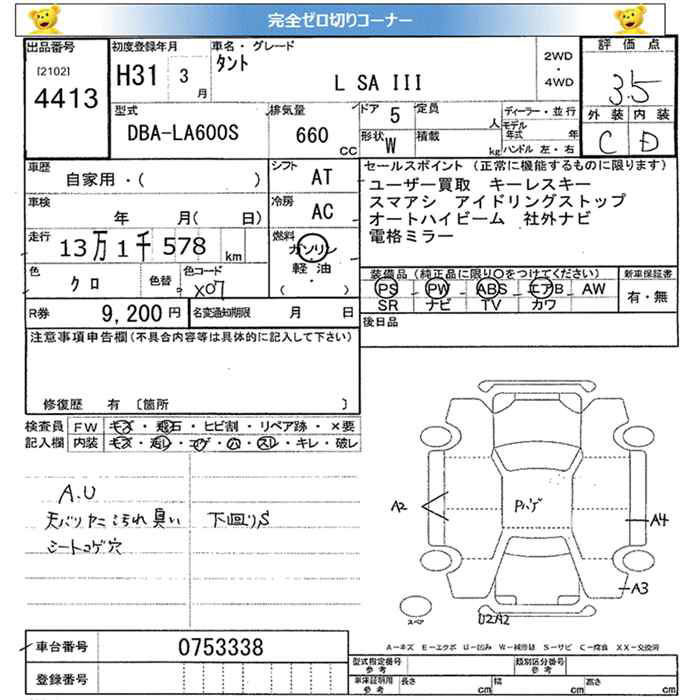 完全ゼロ切りコーナー
出品番号
[2102]
4413
初度登録年月
H31 3 月
車名・グレード
タント
L SA III
2WD
・
4WD
評価点
3.5
外装 内装
C D
型式
DBA-LA600S
排気量
660 CC
ドア 5
定員 人
形状 W
積載 kg
ディーラー・並行
モデル年式 年
ハンドル 左・右
車歴
自家用・( )
シフト
AT
車検
年 月( 日)
冷房
AC
走行
13万1千578 km
燃料
ガソリン
軽油
・
( )
色
クロ
色替
色コード
X07
R券 9,200円
名変通知期限 月 日
セールスポイント(正常に機能するものに限ります)
ユーザー買取 キーレスキー
スマアシ アイドリングストップ
オートハイビーム 社外ナビ
電格ミラー
装備品(純正品に限り○をつけてください)
PS PW ABS エアB AW
SR ナビ TV カワ
新車保証書
有・無
後日品
注意事項申告欄(不具合内容等は具体的に記入して下さい)
修復歴 有 〔箇所 〕
検査員記入欄
FW キズ・飛石・ヒビ割・リペア跡・×要
内装 キズ・汚レ・コゲ・穴・スレ・キレ・破レ
A.U
天バリヤニ汚れ臭い
シートコゲ穴
下回りS
A2
Pハゲ
A4
A3
U2A2
スペア
A-キズ E-エクボ U-凹み W-補修跡 S-サビ C-腐食 XX-交換済
車台番号 0753338
登録番号
型式指定番号 参考
類別区分番号 参考
車庫証明用 参考
長さ cm 幅 cm 高さ cm